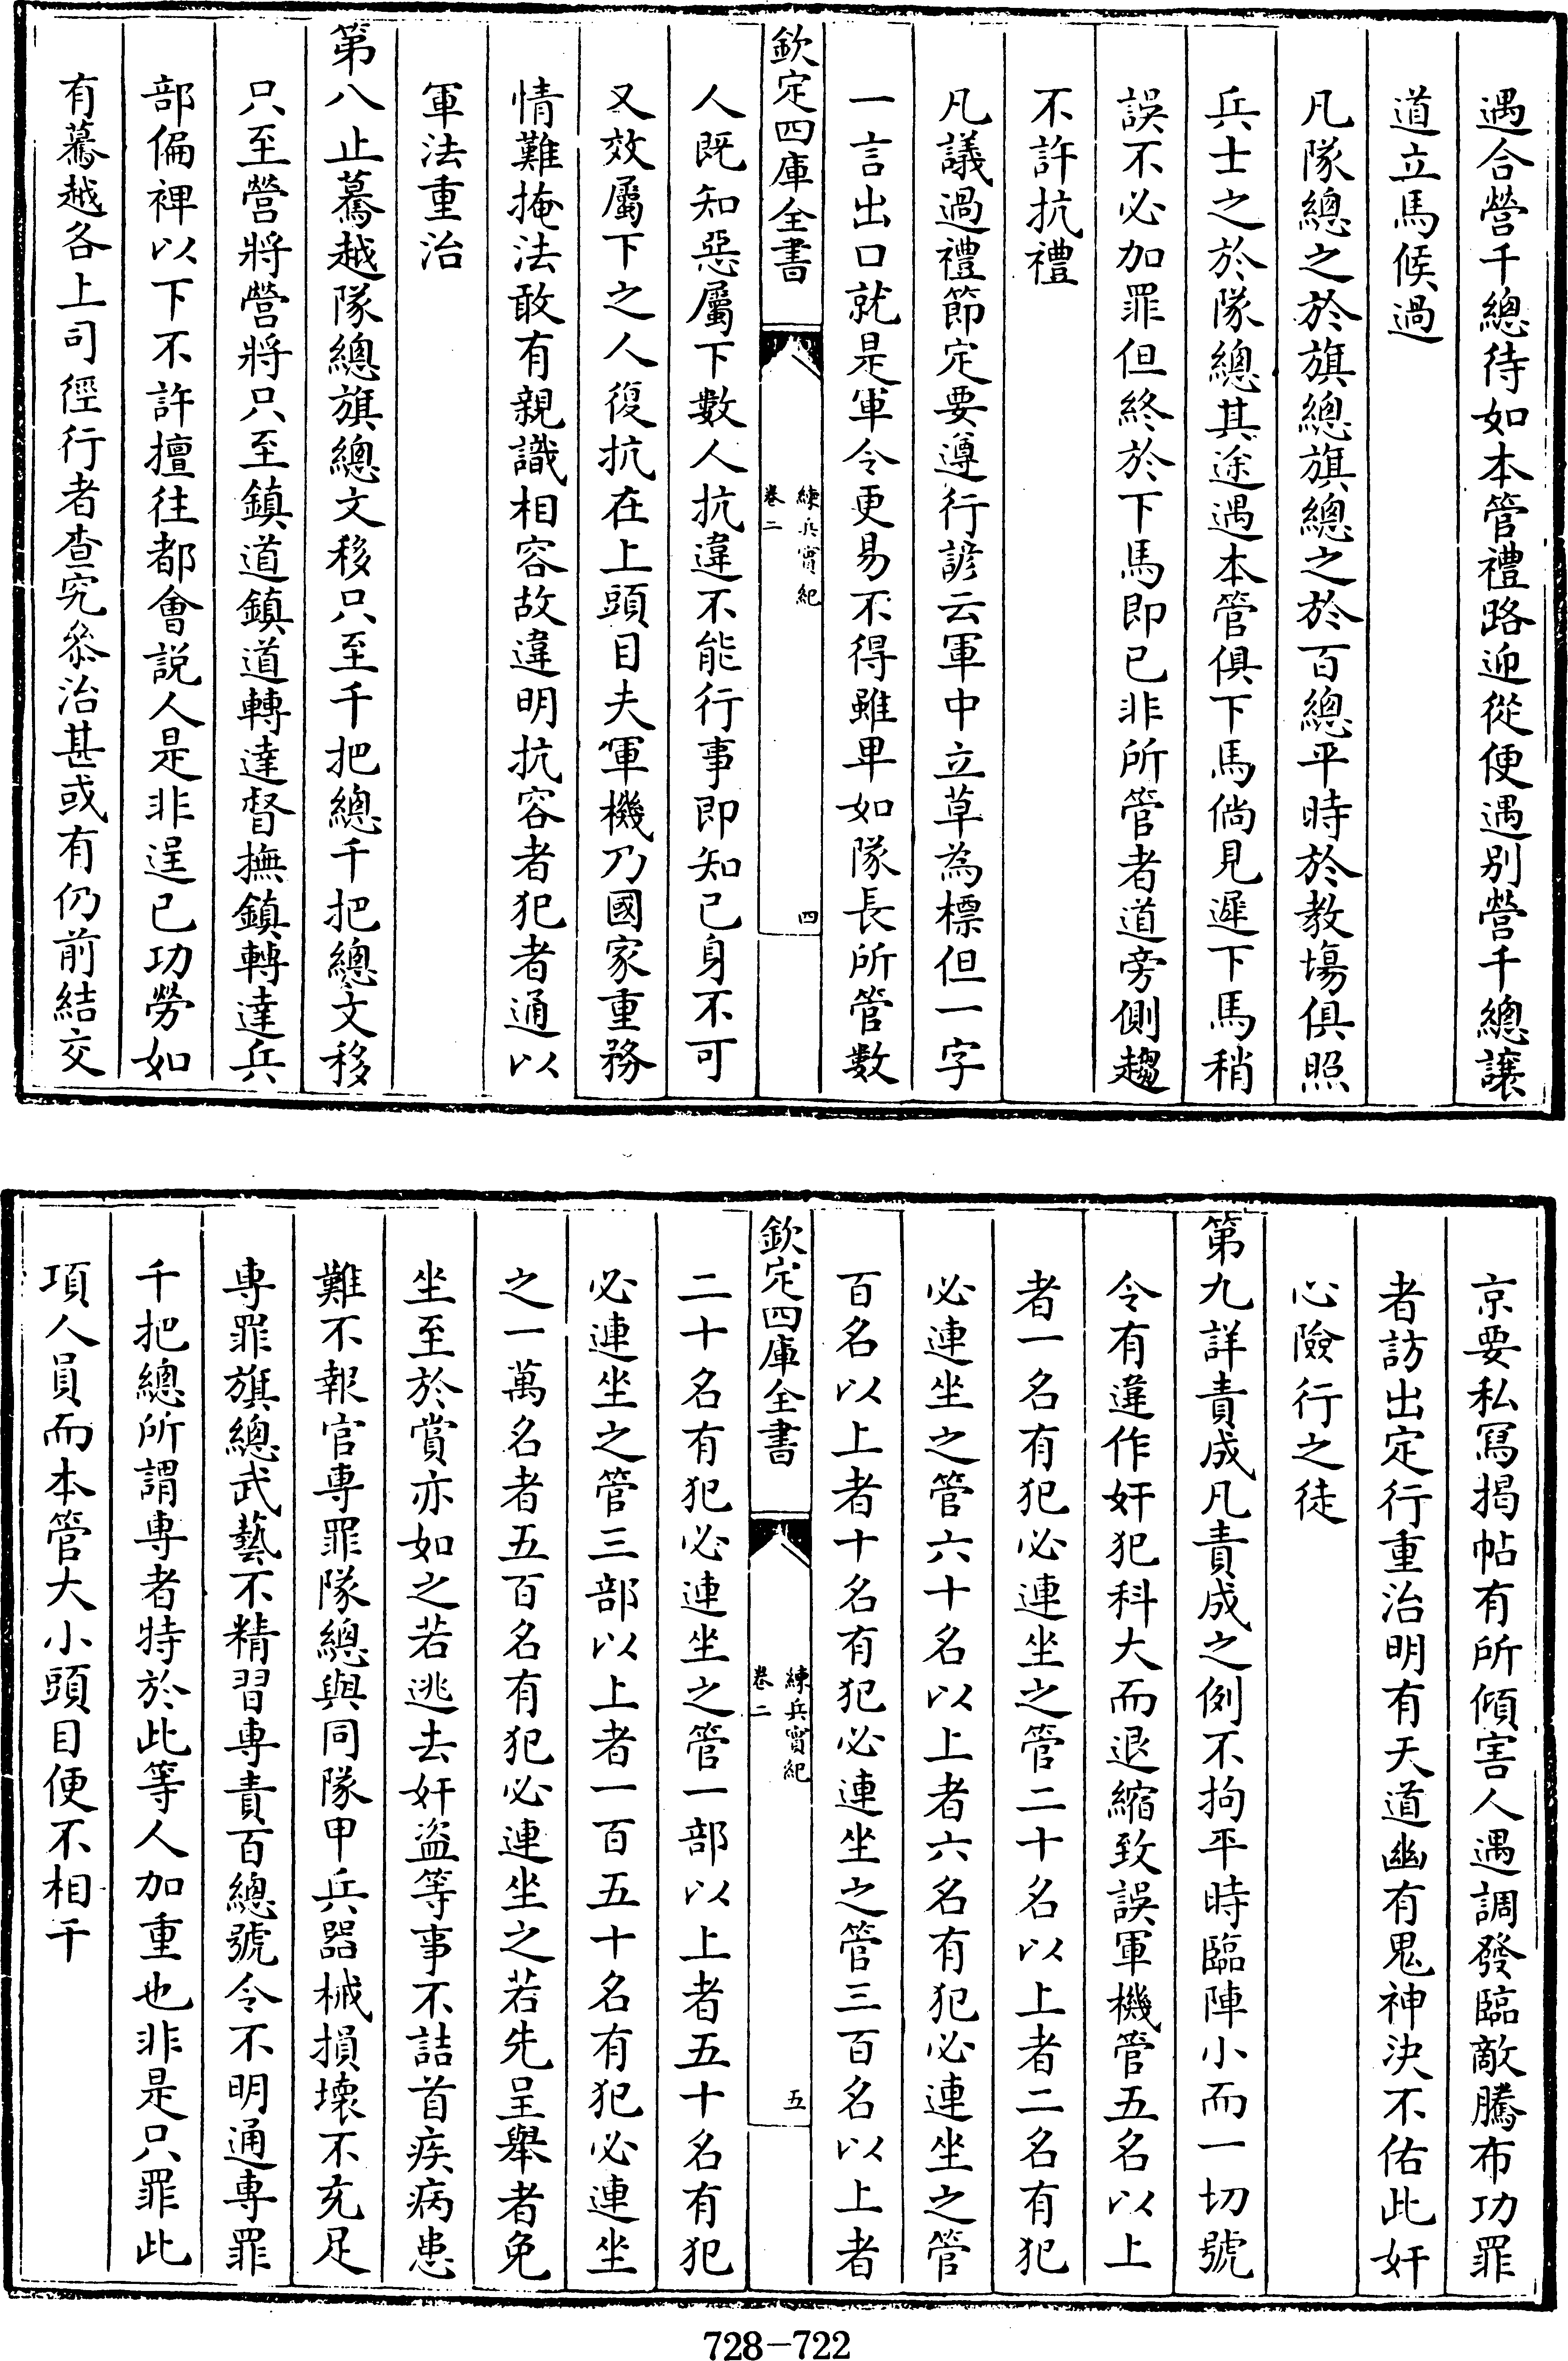 遇合營千總待如本管禮路迎從便遇别營千總讓
道立馬候過
凡隊總之於旗總旗總之於百總平時於教塲俱照
兵士之於隊總其途遇本管俱下馬倘見遲下馬稍
誤不必加罪但終於下馬即已非所管者道旁側趨
不許抗禮
凡議過禮節定要遵行諺云軍中立草為標但一字
一言出口就是軍令更易不得雖卑如隊長所管數
欽定四庫全書
練兵實紀
卷二
四
人既知惡屬下數人抗違不能行事即知已身不可
又效屬下之人復抗在上頭目夫軍機乃國家重務
情難掩法敢有親識相容故違明抗容者犯者通以
軍法重治
第八止驀越隊總旗總文移只至千把總千把總文移
只至營將營將只至鎮道鎮道轉達督撫鎮轉達兵
部偏裨以下不許擅往都會説人是非逞已功勞如
有驀越各上司徑行者查究叅治甚或有仍前結交
京要私冩揭帖有所傾害人遇調發臨敵騰布功罪
者訪出定行重治明有天道幽有鬼神決不佑此奸
心險行之徒
第九詳責成凡責成之例不拘平時臨陣小而一切號
令有違作奸犯科大而退縮致誤軍機管五名以上
者一名有犯必連坐之管二十名以上者二名有犯
必連坐之管六十名以上者六名有犯必連坐之管
百名以上者十名有犯必連坐之管三百名以上者
欽定四庫全書
練兵實紀
卷二
五
二十名有犯必連坐之管一部以上者五十名有犯
必連坐之管三部以上者一百五十名有犯必連坐
之一萬名者五百名有犯必連坐之若先呈舉者免
坐至於賞亦如之若逃去奸盗等事不詰首疾病患
難不報官專罪隊總與同隊甲兵器械損壞不充足
專罪旗總武藝不精習專責百總號令不明通專罪
千把總所謂專者特於此等人加重也非是只罪此
項人員而本管大小頭目便不相干
728-722